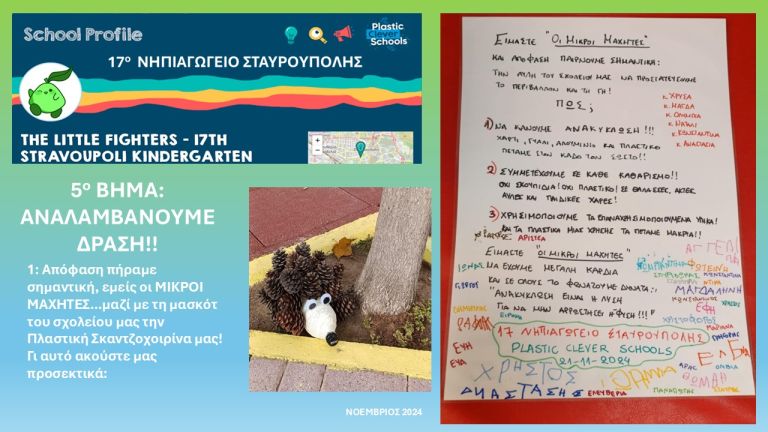 School Profile
Plastic
Clever
Schools
17º ΝΗΠΙΑΓΩΓΕΙΟ ΣΤΑΥΡΟΥΠΟΛΗΣ
THE LITTLE FIGHTERS - 17TH
STRAVOUPOLI KINDERGARTEN
5º ΒΗΜΑ:
ΑΝΑΛΑΜΒΑΝΟΥΜΕ
ΔΡΑΣΗ!!
1: Απόφαση πήραμε
σημαντική, εμείς οι ΜΙΚΡΟΙ
ΜΑΧΗΤΕΣ...μαζί με τη μασκότ
του σχολείου μας την
Πλαστική Σκαντζοχοιρίνα μας!
Γι αυτό ακούστε μας
προσεκτικά:
ΝΟΕΜΒΡΙΟΣ 2024
ΕΙΜΑΣΤΕ "ΟΙ ΜΙΚΡΟΙ ΜΑΧΗΤΕΣ"
ΚΑΙ ΑΠΟΦΑΣΗ ΠΑΙΡΝΟΥΜΕ ΣΗΜΑΝΤΙΚΗ:
ΤΗΝ ΑΥΛΗ ΤΟΥ ΣΧΟΛΕΙΟΥ ΜΑΣ ΝΑ ΠΡΟΣΤΑΤΕΥΟΥΜΕ
ΤΟ ΠΕΡΙΒΑΛΛΟΝ ΚΑΙ ΤΗ ΓΗ!
ΠΩΣ;
κ. ΧΡΥΣΑ
κ. ΜΑΓΔΑ
κ. ΟΛΥΜΠΙΑ
κ. ΚΩΝΣΤΑΝΤΙΝΑ
κ. ΑΝΑΣΤΑΣΙΑ
1) ΝΑ ΚΑΝΟΥΜΕ ΑΝΑΚΥΚΛΩΣΗ!!!
ΧΑΡΤΙ, ΓΥΑΛΙ, ΑΛΟΥΜΙΝΙΟ ΚΑΙ ΠΛΑΣΤΙΚΟ
ΠΕΤΑΜΕ ΣΤΟΝ ΚΑΔΟ ΤΟΝ ΣΩΣΤΟ!!
2) ΣΥΜΜΕΤΕΧΟΥΜΕ ΣΕ ΚΑΘΕ ΚΑΘΑΡΙΣΜΟ!!
ΟΧΙ ΣΚΟΥΠΙΔΙΑ! ΟΧΙ ΠΛΑΣΤΙΚΟ! ΣΕ ΘΑΛΑΣΣΕΣ, ΑΚΤΕΣ,
ΑΥΛΕΣ ΚΑΙ ΠΑΙΔΙΚΕΣ ΧΑΡΕΣ!
3) ΧΡΗΣΙΜΟΠΟΙΟΥΜΕ ΤΑ ΕΠΑΝΑΧΡΗΣΙΜΟΠΟΙΟΥΜΕΝΑ ΥΛΙΚΑ!
ΚΑΙ ΤΑ ΠΛΑΣΤΙΚΑ ΜΙΑΣ ΧΡΗΣΗΣ ΤΑ ΠΕΤΑΜΕ ΜΑΚΡΙΑ!!
ΑΡΙΣΤΕΑ
ΕΙΜΑΣΤΕ "ΟΙ ΜΙΚΡΟΙ ΜΑΧΗΤΕΣ"
ΝΑ ΕΧΟΥΜΕ ΜΕΓΑΛΗ ΚΑΡΔΙΑ
ΚΑΙ ΣΕ ΟΛΟΥΣ ΤΟ ΦΩΝΑΖΟΥΜΕ ΔΥΝΑΤΑ:
"ΑΝΑΚΥΚΛΩΣΗ ΕΙΝΑΙ Η ΛΥΣΗ
ΓΙΑ ΝΑ ΜΗΝ ΑΡΡΩΣΤΗΣΕΙ Η ΦΥΣΗ!!!"
ΦΩΤΕΙΝΗ
ΜΑΓΔΑΛΗΝΗ
ΕΦΗ
ΧΡΙΣΤΟΦΟΡΟΣ
17 ΝΗΠΙΑΓΩΓΕΙΟ ΣΤΑΥΡΟΥΠΟΛΗΣ
PLASTIC CLEVER SCHOOLS
21-11-2024
ΜΑΡΙΑΝΑ
ΕΥΗ
ΕΥΑ
ΧΡΗΣΤΟΣ
ΘΩΜΑΗ
ΑΝΑΣΤΑΣΗΣ
ΕΛΕΥΘΕΡΙΑ
ΠΑΝΑΓΙΩΤΗΣ